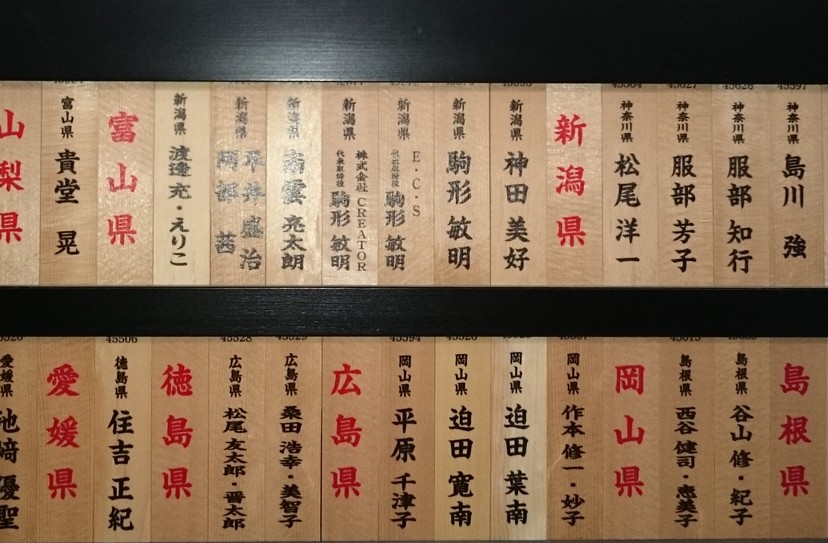 神奈川県 島川 強
神奈川県 服部 知行
神奈川県 服部 芳子
神奈川県 松尾 洋一
新潟県
新潟県 神田 美好
新潟県 駒形 敏明
新潟県 E・C・S 代表取締役 駒形 敏明
新潟県 株式会社 CREATOR 代表取締役 駒形 敏明
新潟県 南雲 亮太郎
新潟県 平井 盛治 阿部 茜
新潟県 渡邊 充・えりこ
富山県
富山県 貴堂 晃
山梨県
島根県
島根県 谷山 修・紀子
島根県 西谷 健司・恵美子
岡山県
岡山県 作本 修一・妙子
岡山県 迫田 葉南
岡山県 迫田 寛南
45594 岡山県 平原 千津子
広島県
広島県 桑田 浩幸・美智子
45528 広島県 松尾 友太郎・晋太郎
徳島県
45506 徳島県 住吉 正紀
愛媛県
愛媛県 池﨑 優聖